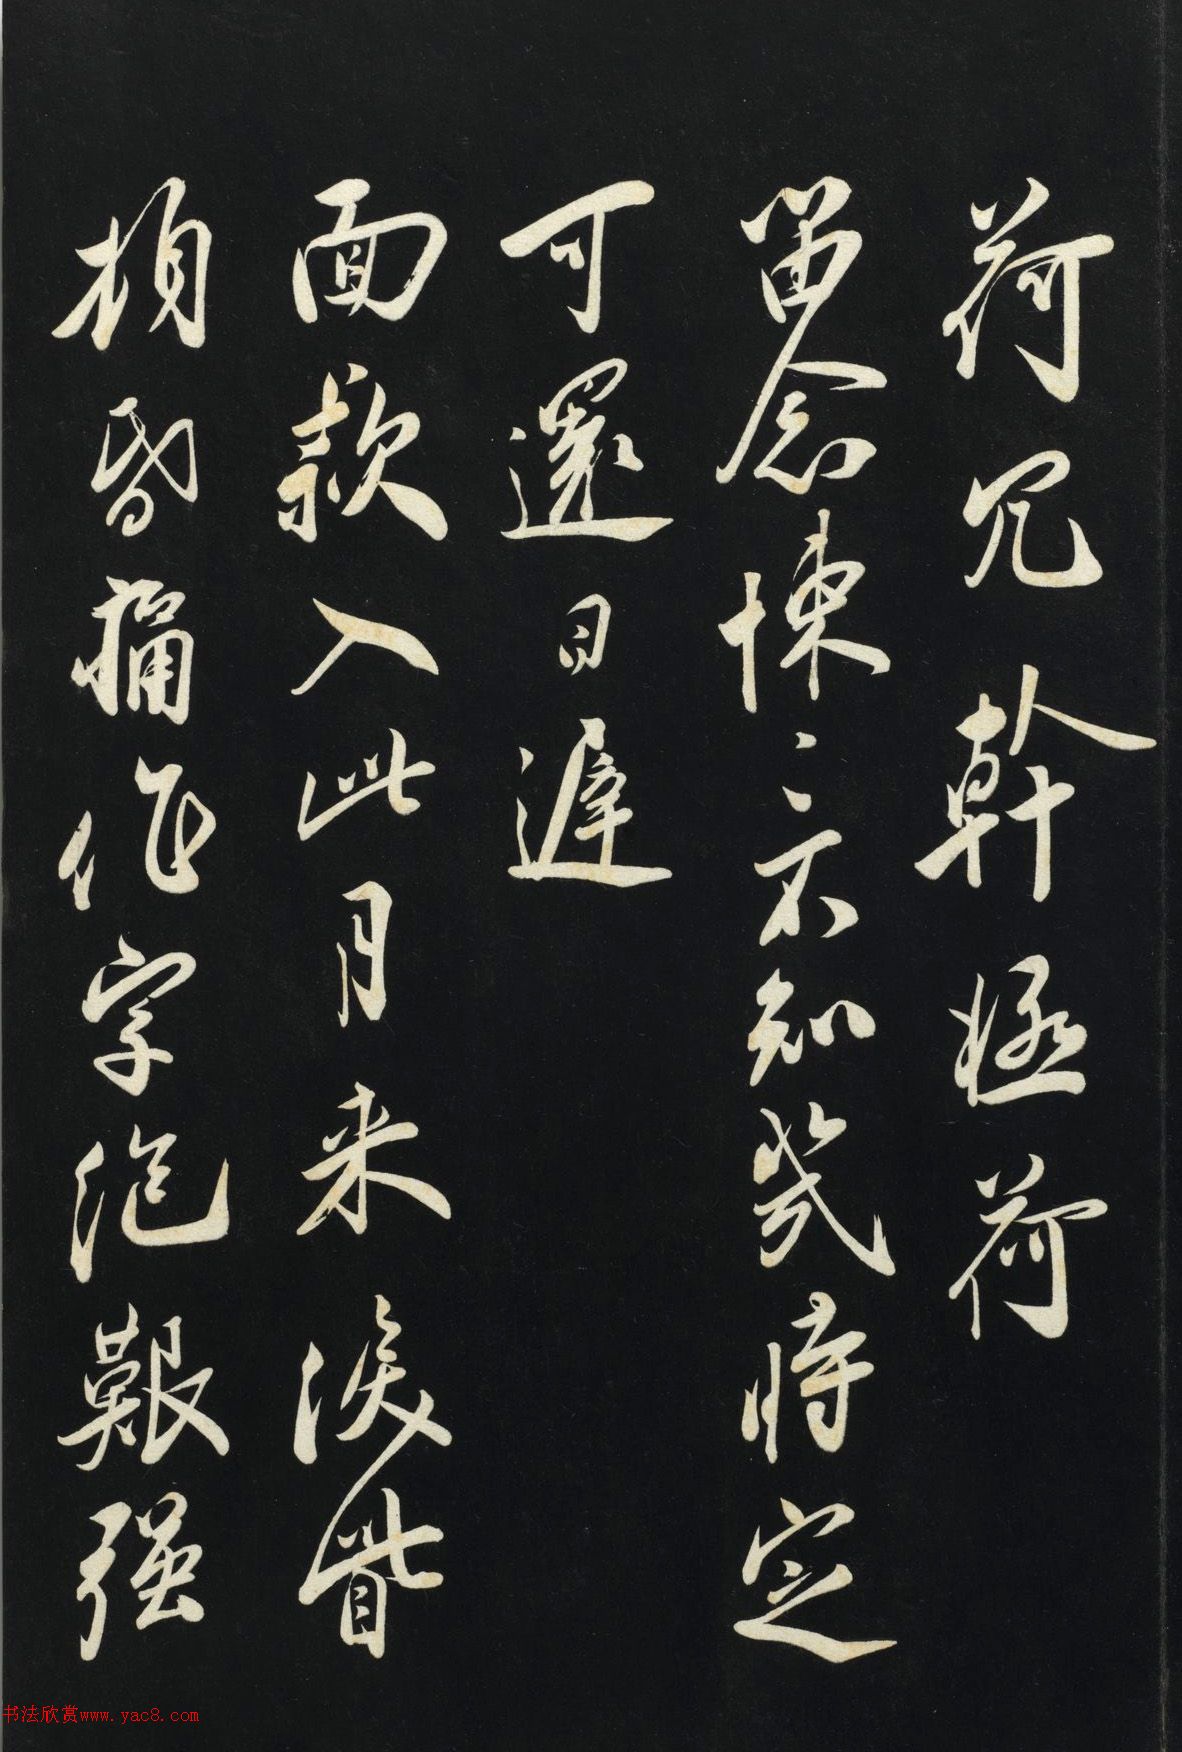 荷兄幹極荷
留念悚〻不知幾時定
可還日遲
面款入此月来淚眥
頰昏痛作字泡艱强
书法欣赏www.yac8.com